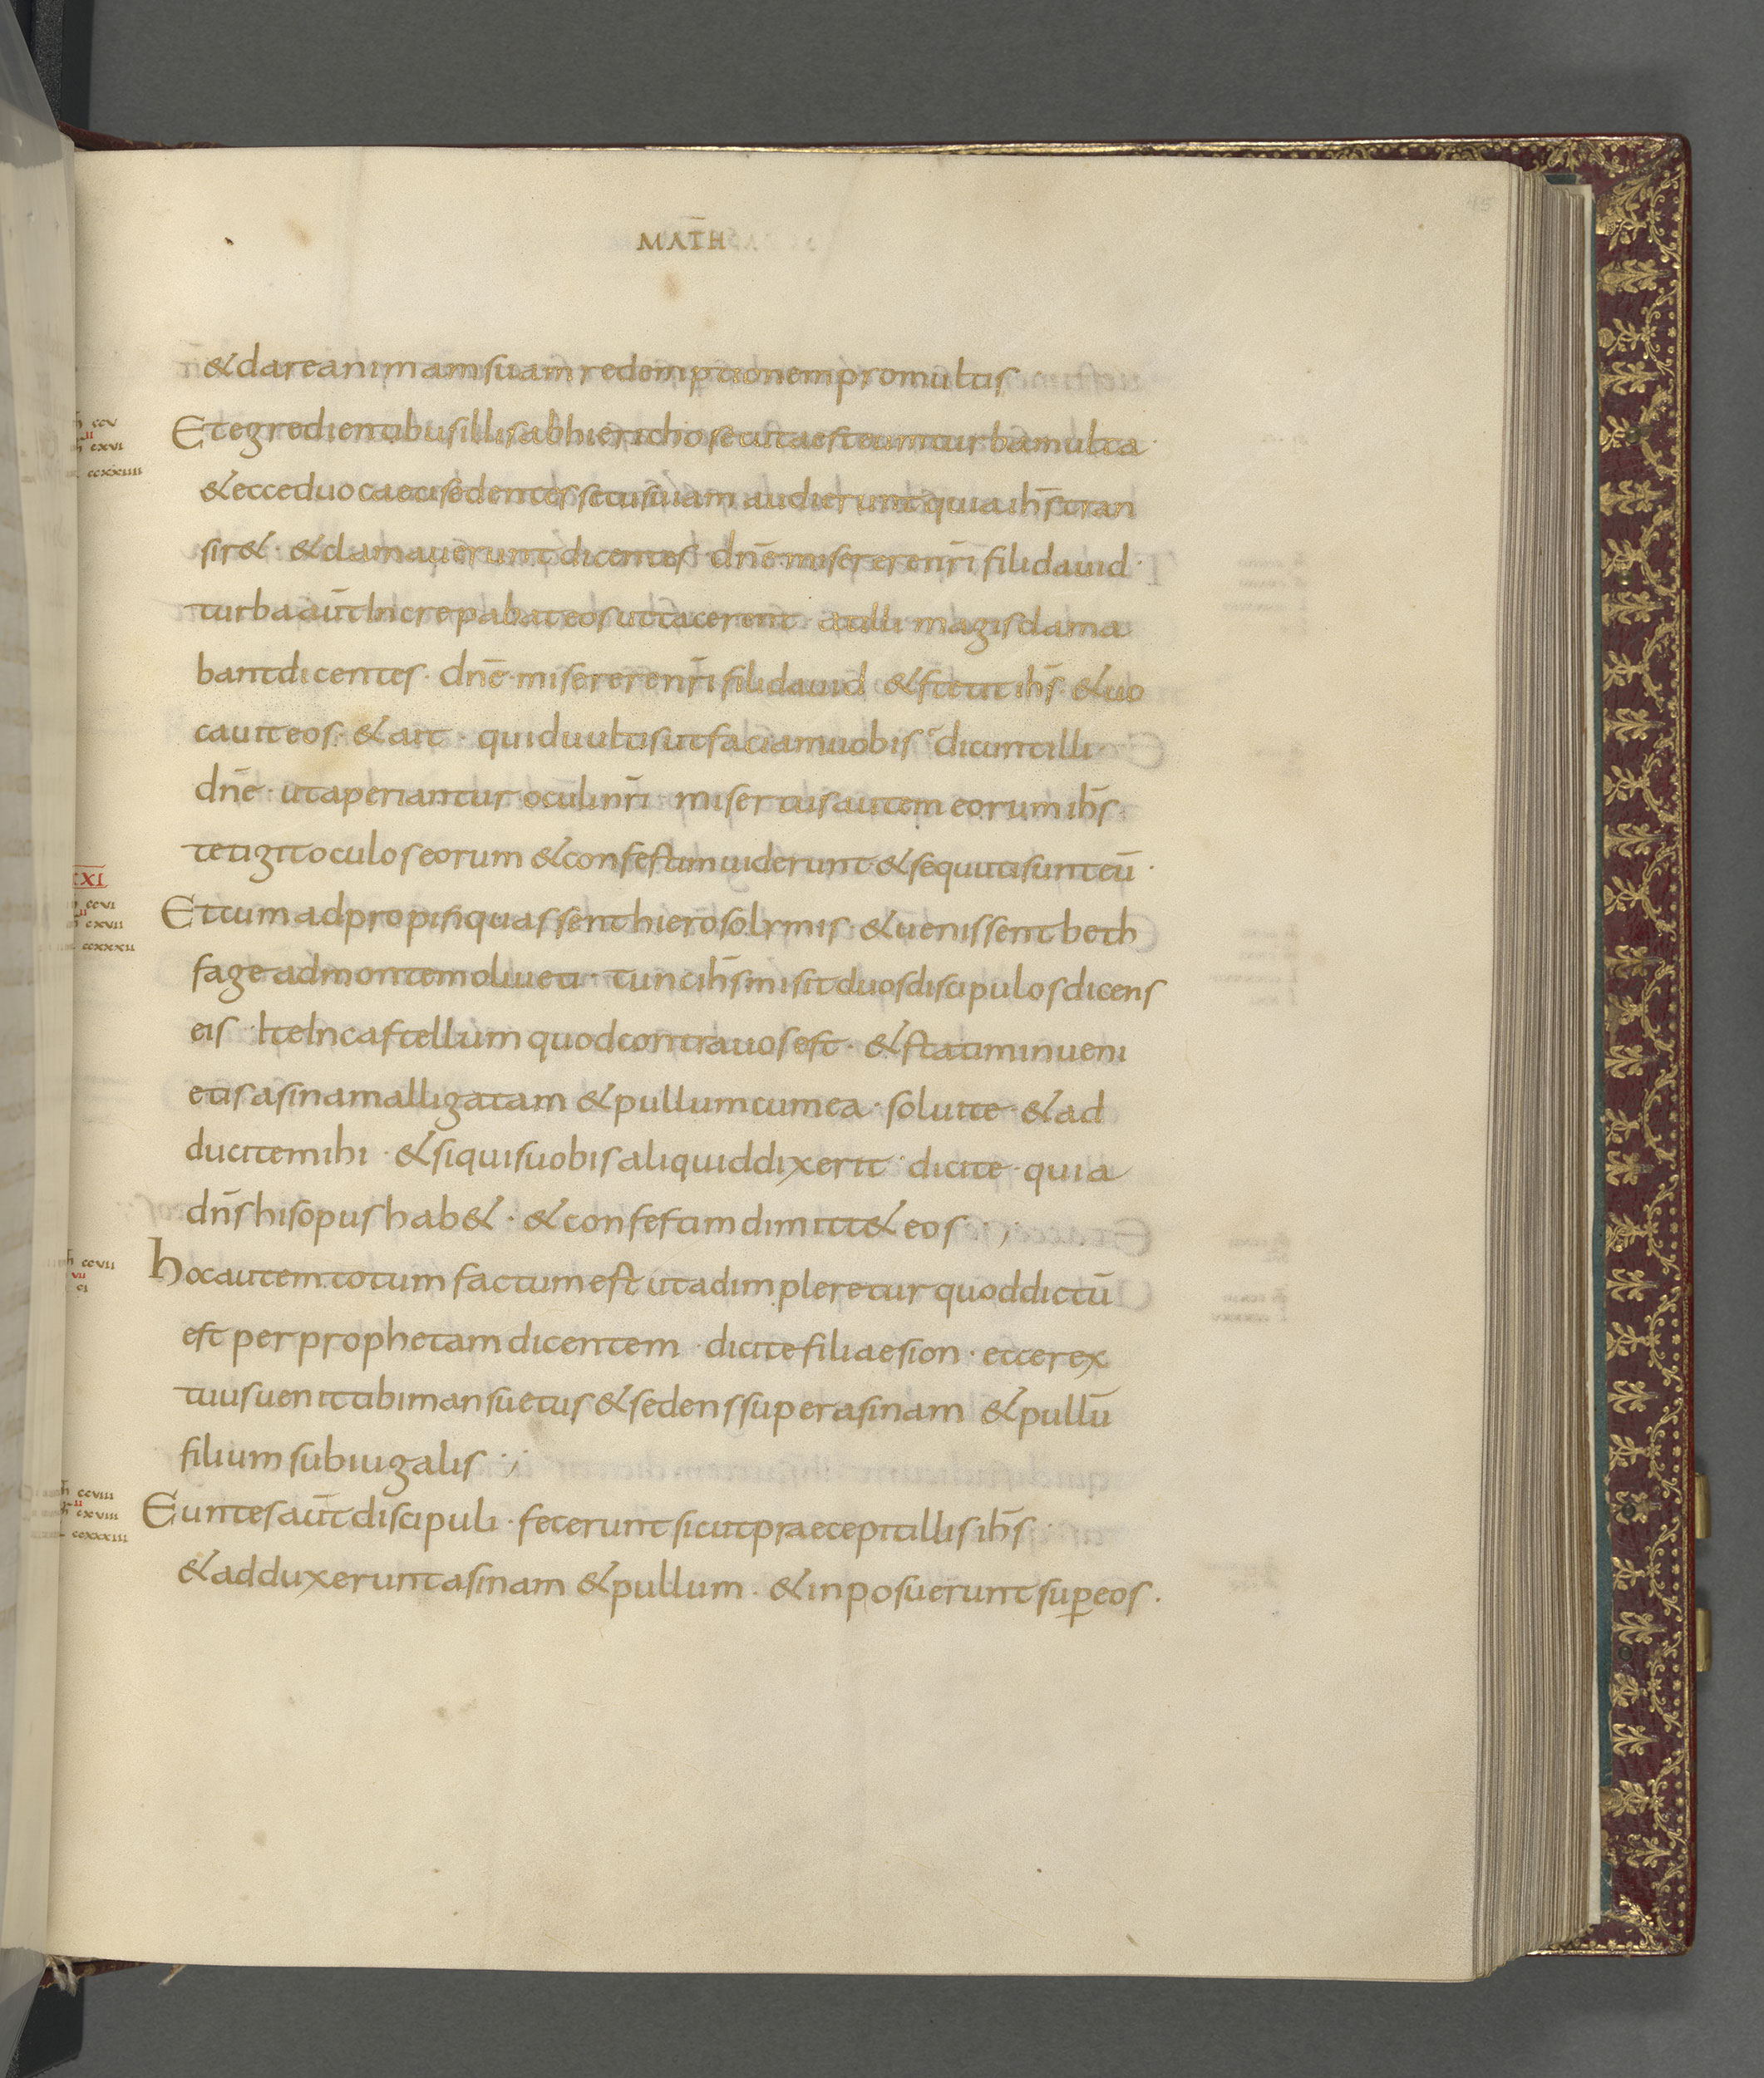 45
MATH
& dare animam suam redemptionem pro multis
cɔv
II
cxvi
ccxxiiii
Et egredientibus illis ab hiericho secuta est eum turba multa ·
& ecce duo caeci sedentes secus uiam audierunt quia ih̄s tran
sir& · & clamauerunt dicentes · dn̄e miserere nr̄i fili dauid ·
turba aut̄ increpabat eos ut tacerent · at illi magis clama
bant dicentes · dn̄e · miserere nr̄i fili dauid & stetit ih̄s · & uo
cauit eos · & ait · quid uultis ut faciam uobis dicunt illi
dn̄e · ut aperiantur oculi nr̄i · misertus autem eorum ih̄s ·
tetigit oculos eorum & confestim uiderunt & sequuti sunt eū ·
XXI
ccvi
II
cxvii
ccxxxii
Et cum adpropinquassent hierosolymis · & uenissent beth
fage ad montem oliueti · tunc ih̄s misit duos discipulos dicens
eis · Ite In castellum quod contra uos est · & statim inueni
etis asinam alligatam & pullum cum ea · soluite · & ad
ducite mihi · & si quis uobis aliquid dixerit · dicite · quia
dn̄s his opus hab& · & confestim dimitt& eos · ;
ccvii
vii
ci
hoc autem totum factum est ut adimpleretur quod dictū
est per prophetam dicentem · dicite filiae sion · ecce rex
tuus uenit tibi mansuetus & sedens super asinam & pullū
filium subiugalis · ;
ccviii
II
cxviii
ccxxxiii
Euntes aut̄ discipuli · fecerunt sicut praecepit illis ih̄s ·
& adduxerunt asinam & pullum · & inposuerunt suꝑ eos ·